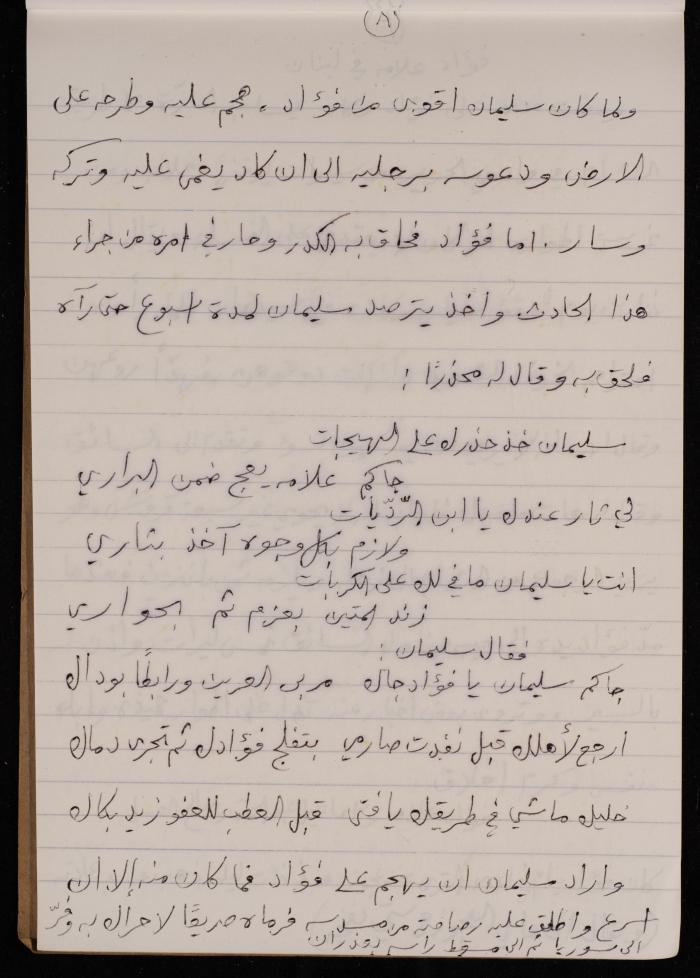 (٨)
ولما كان سليمان اقوى من فؤاد ، هجم عليه وطرحه على
الارض وداعوسه برجليه الى ان كاد يغمى عليه وتركه
وسار . اما فؤاد فحاق به الكدر وحار في امره من جراء
هذا الحادث واخذ يترصد سليمان لمدة اسبوع حتى رآه
فلحق به وقال له محذرًا :
سليمان خذ حذرك على الهيجات
جاكم علامه يعج ضمن البراري
لي ثار عندك يا ابن الرّدّيات
ولازم بكل وجوه آخذ بثاري
انت يا سليمان ما في لك على الكربات
زند المتين بعزم ثم الجواري
فقال سليمان :
جاكم سليمان يا فؤاد جاك مربى العرين ورابطًا بوداك
ارجع لأهلك قبل نفدت صارمي بتفلج فؤادك ثم تجري دماك
خليك ماشي في طريقك يا فتى قبل العطب للعفو زيد بكاك
واراد سليمان ان يهجم على فؤاد فما كان منه إلا ان
اسرع واطلق عليه رصاصة من مسدسه فرماه صريعًا لا حراك به وفرّ
الى سوريا ثم الى مسقط رأسه